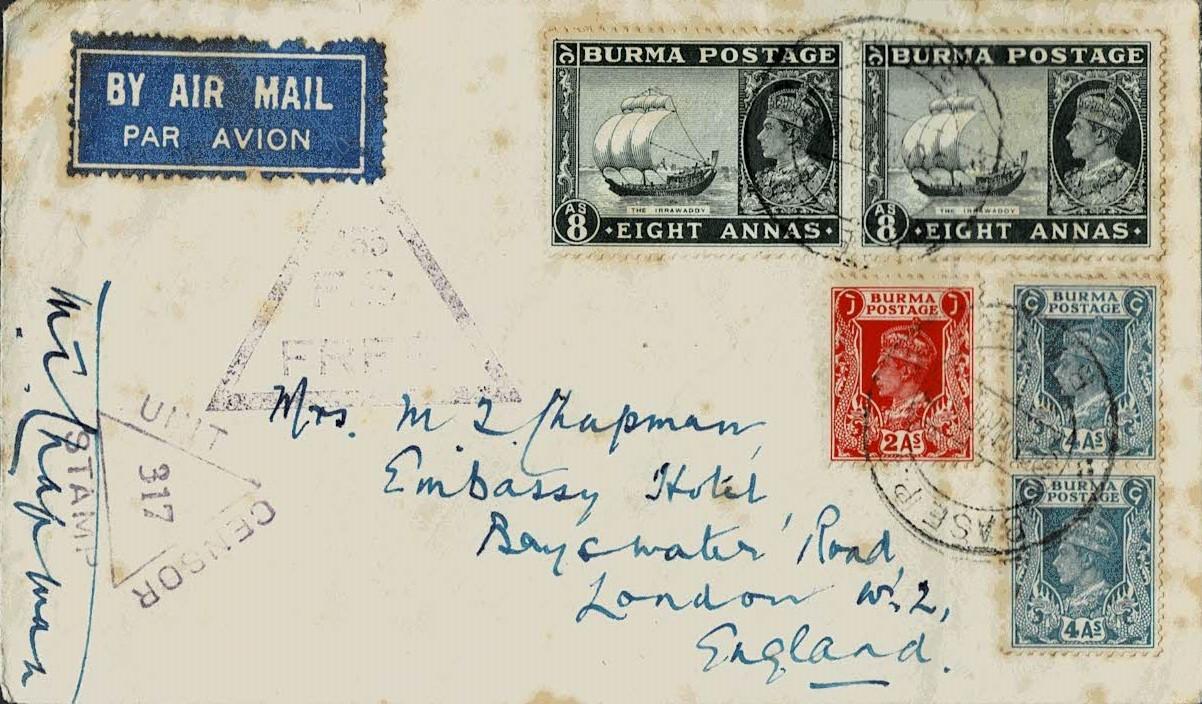 BY AIR MAIL
PAR AVION
BURMA POSTAGE
THE IRRAWADDY
AS
8
EIGHT ANNAS
BURMA POSTAGE
THE IRRAWADDY
AS
8
EIGHT ANNAS
BURMA
POSTAGE
2 AS
BURMA
POSTAGE
4 AS
BURMA
POSTAGE
4 AS
BASE P.
UNIT
CENSOR
STAMP
317
Chapman
Mrs. M. L. Chapman,
Embassy Hotel
Bayswater Road,
London W.2,
England.